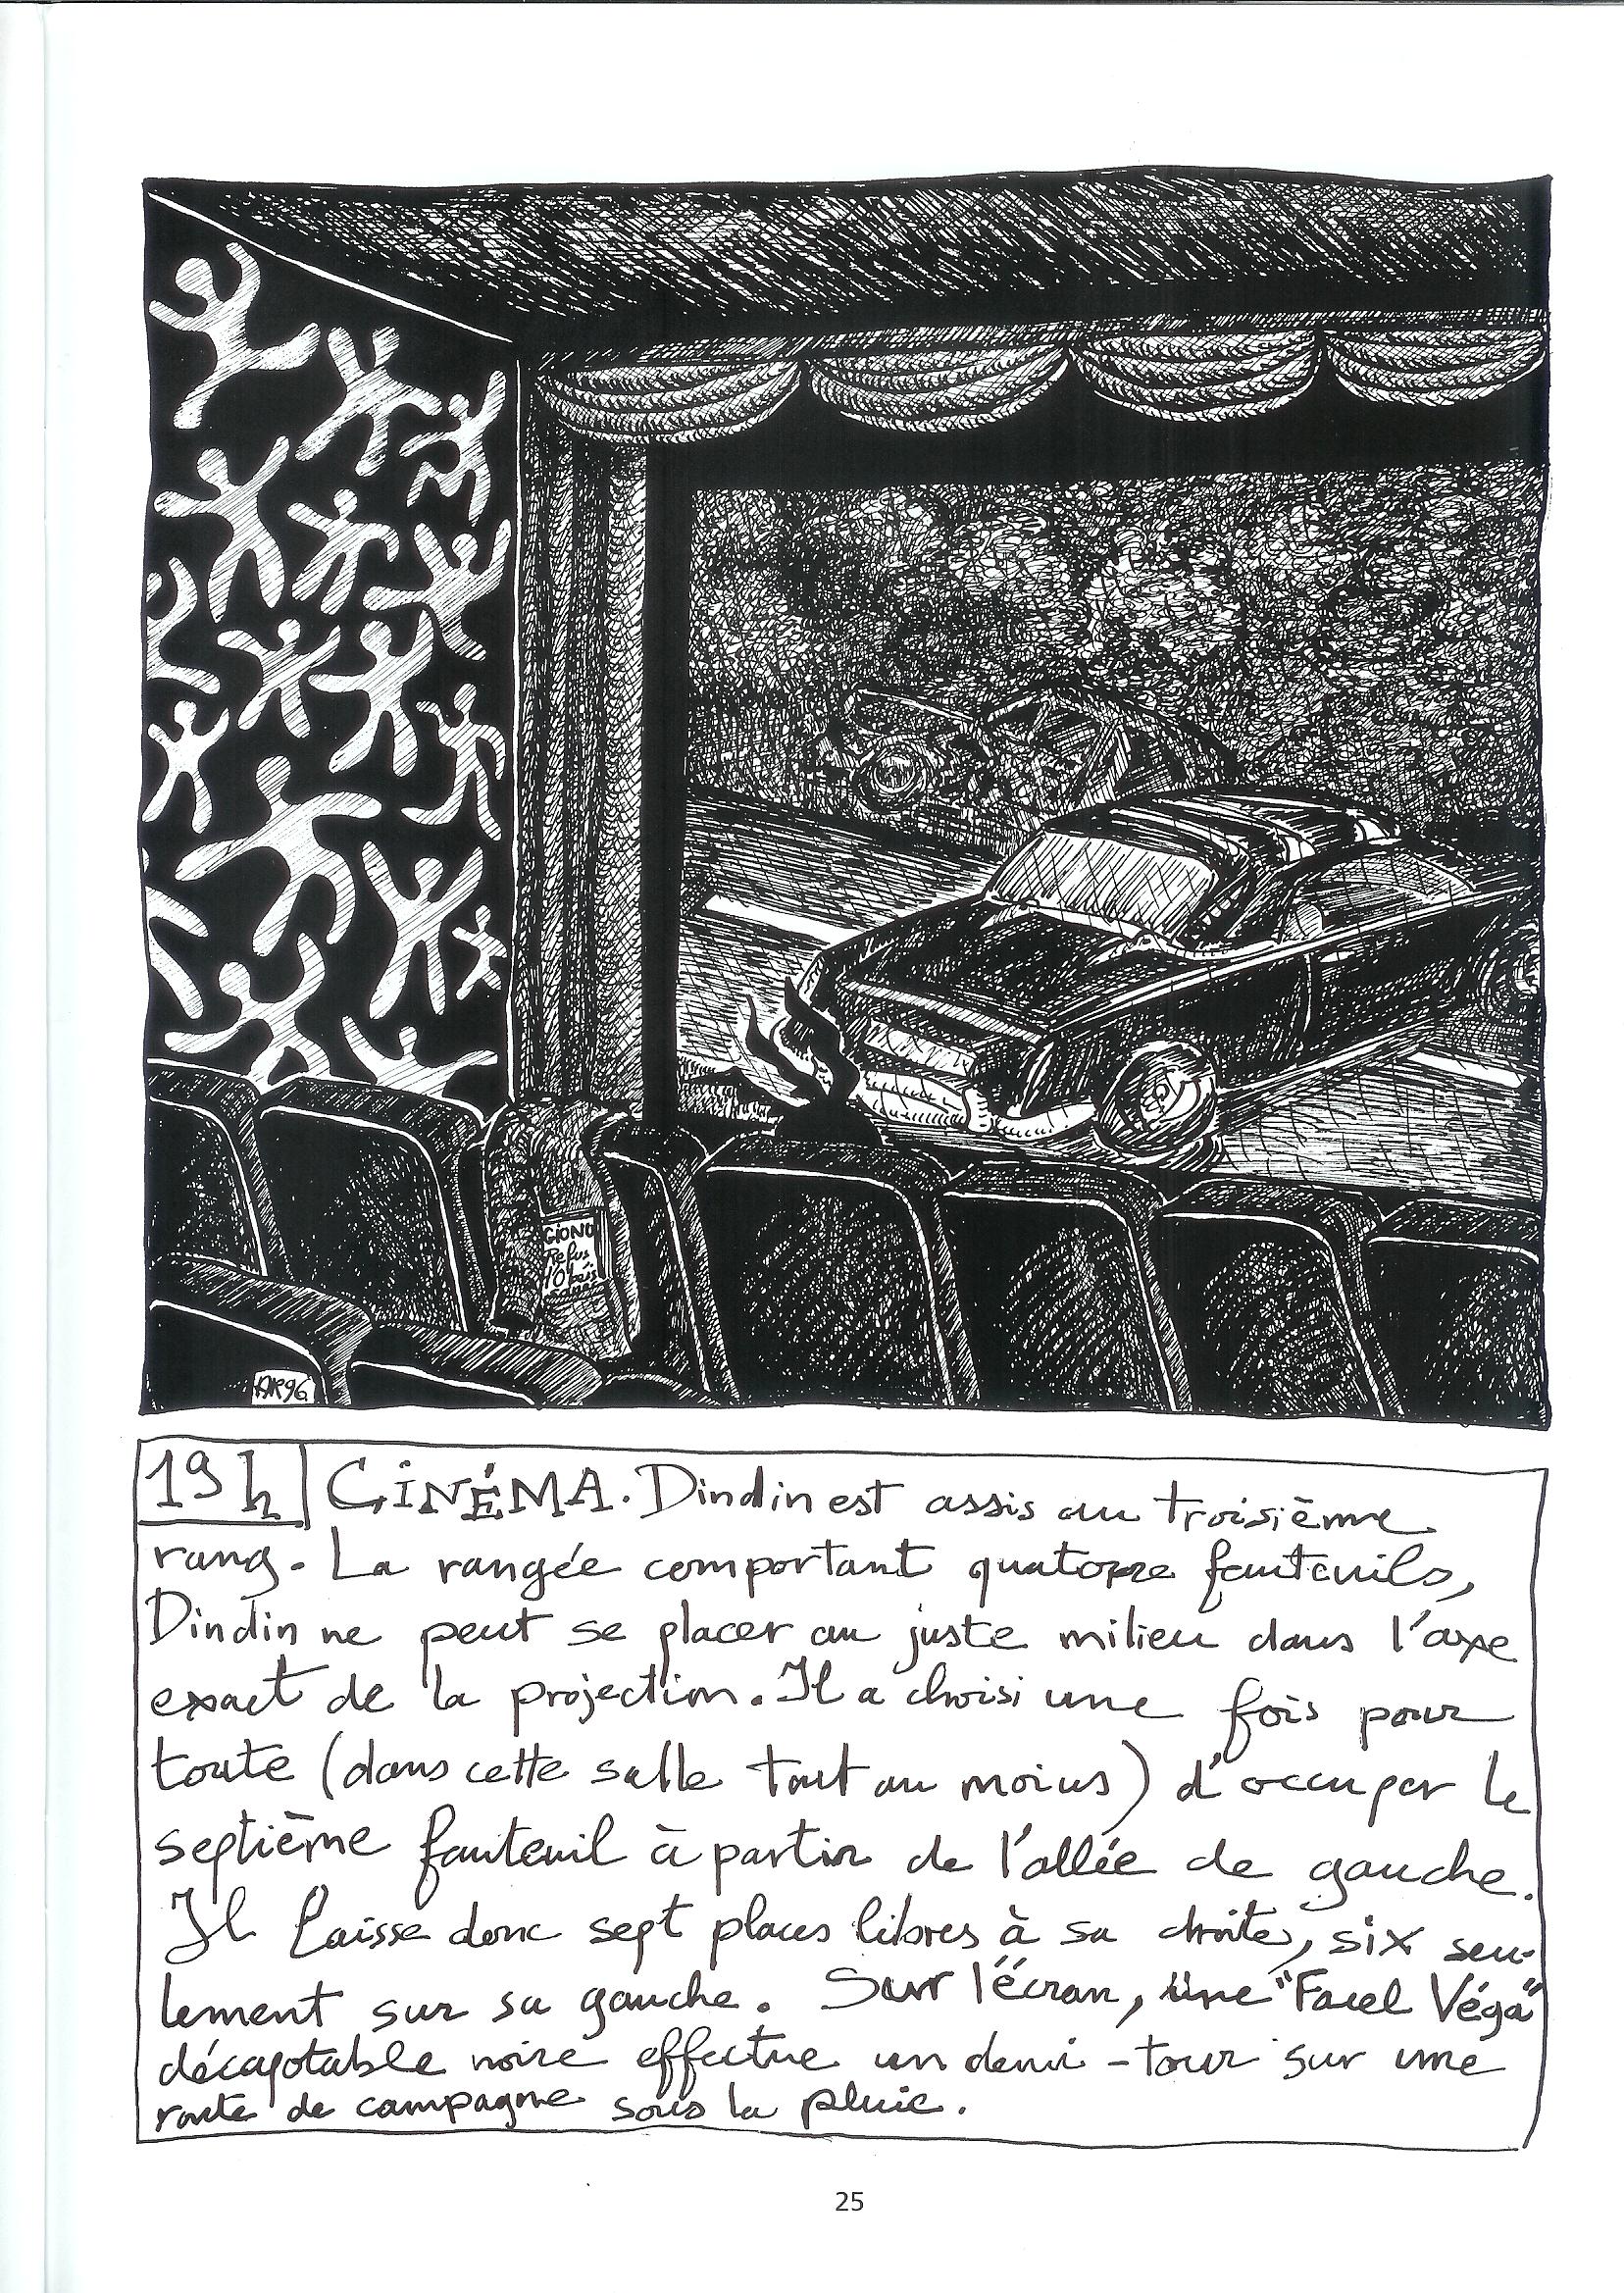 GIONO
Refus
d'Obéis
AR96
19h CINÉMA. Dindin est assis au troisième
rang. La rangée comportant quatorze fauteuils,
Dindin ne peut se placer au juste milieu dans l'axe
exact de la projection. Il a choisi une fois pour
toute (dans cette salle tout au moins) d'occuper le
septième fauteuil à partir de l'allée de gauche.
Il laisse donc sept places libres à sa droite, six seu-
lement sur sa gauche. Sur l'écran, une "Facel Véga"
décapotable noire effectue un demi-tour sur une
route de campagne sous la pluie.
25